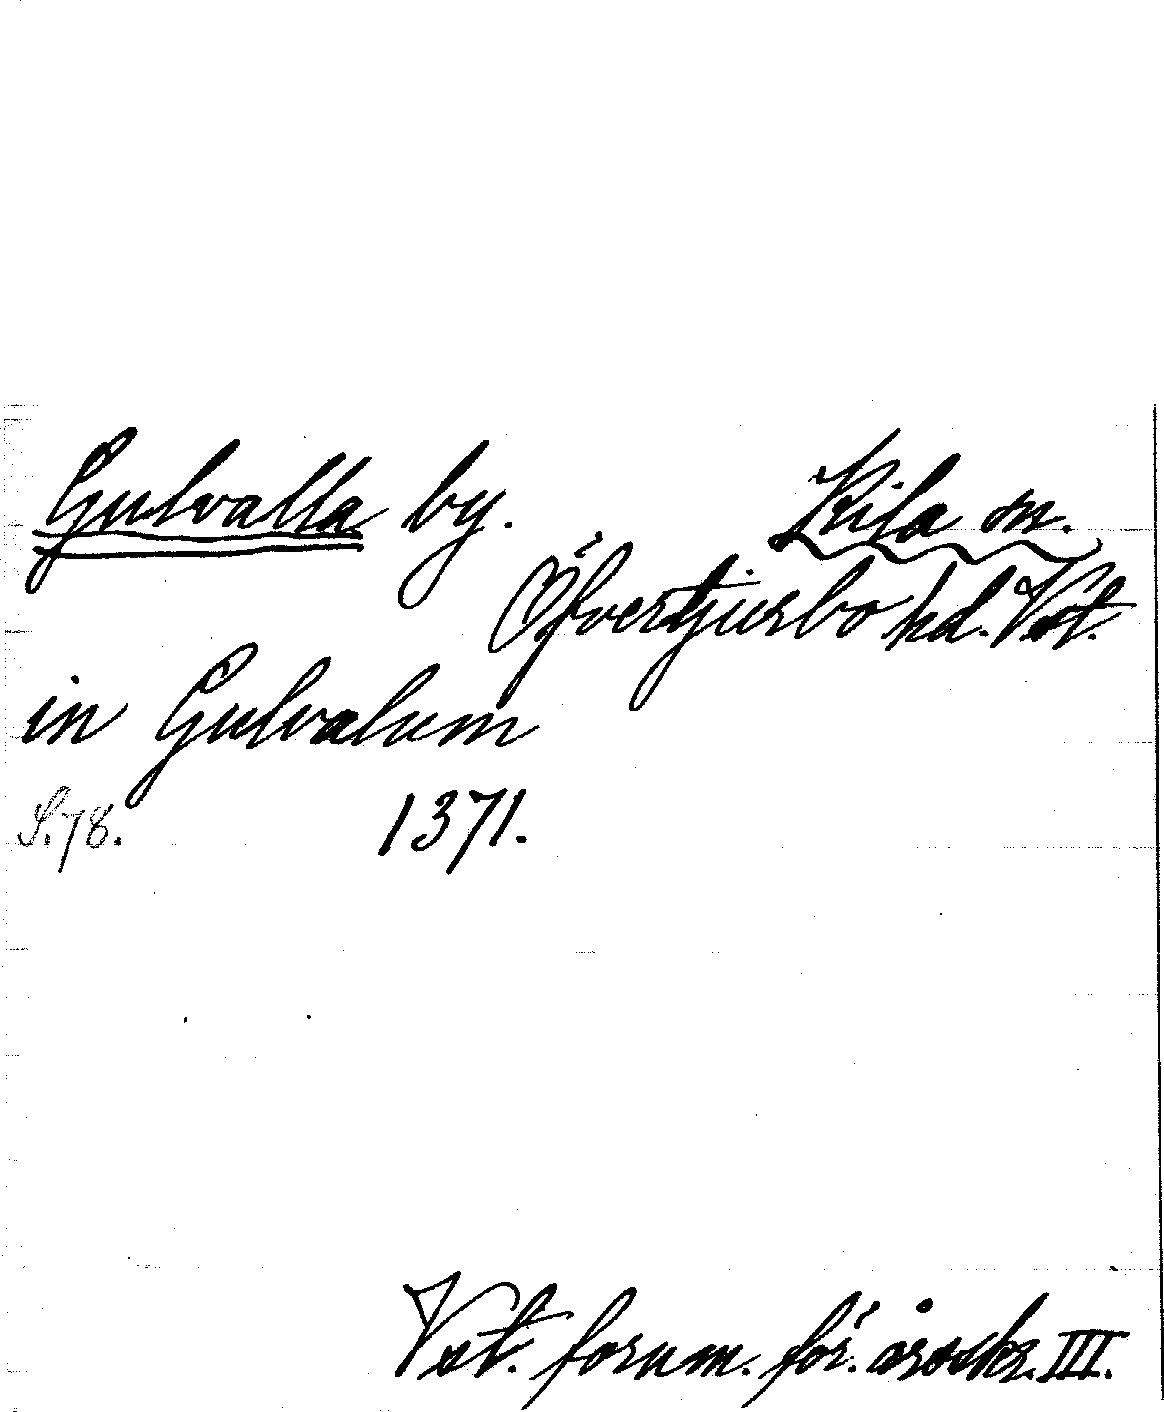 Gulvalla by. Kila sn.
Öfvertjurbo hd. Vst.
in Gulvalum
S. 78. 1371.
Vst. fornm. för. årsskr. III.